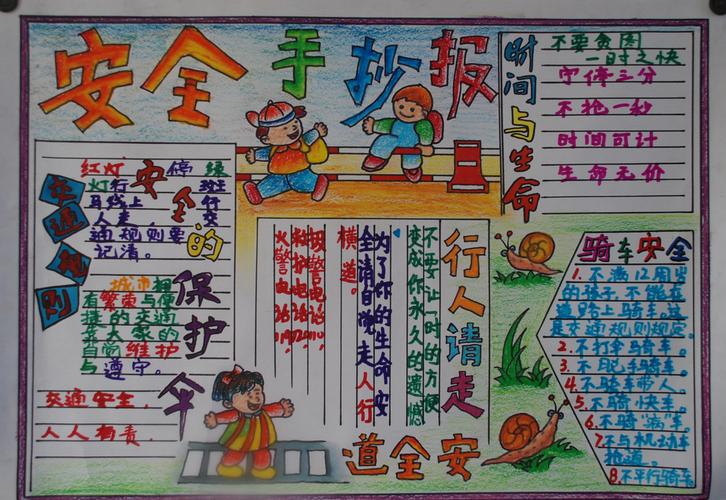 安全手抄报
时间与生命
不要贪图
一时之快
宁停三分
不抢一秒
时间可计
生命无价
交通规则
安全的保护伞
红灯停绿
灯行
斑
马线上行
人走，交
通规则要
记清。
城市拥
有繁荣与便
捷的交通
靠大家的
自觉维护
与遵守。
交通安全，
人人有责．
行人请走
安全道
不要让一时的方便
变成你永久的遗憾
为了你的生命安
全请自觉走人行
横道。
报警电话110
救护电话120
火警电话119
骑车安全
1.不满12周岁
的孩子，不能在
道路上骑车，这
是交通规则规定。
2.不打伞骑车。
3.不脱手骑车。
4.不骑车带人。
5.不骑快车。
6.不骑“病”车。
7.不与机动车
抢道。
8.不平行骑车